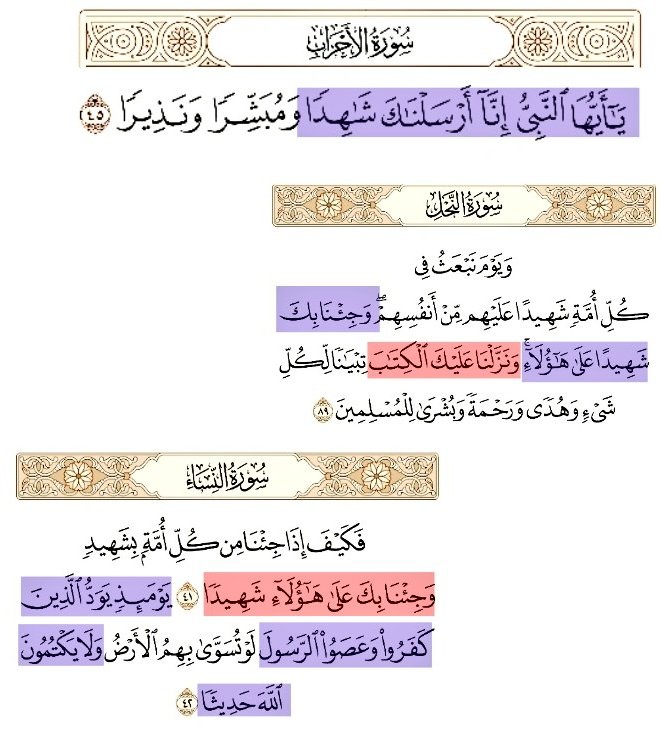 سُورَةُ الأَحْزَابِ
يَٰٓأَيُّهَا ٱلنَّبِىُّ إِنَّآ أَرْسَلْنَٰكَ شَٰهِدًا وَمُبَشِّرًا وَنَذِيرًا ٤٥
سُورَةُ النَّحْلِ
وَيَوْمَ نَبْعَثُ فِى
كُلِّ أُمَّةٍ شَهِيدًا عَلَيْهِم مِّنْ أَنفُسِهِمْ ۖ وَجِئْنَا بِكَ
شَهِيدًا عَلَىٰ هَٰٓؤُلَآءِ ۚ وَنَزَّلْنَا عَلَيْكَ ٱلْكِتَٰبَ تِبْيَٰنًا لِّكُلِّ
شَىْءٍ وَهُدًى وَرَحْمَةً وَبُشْرَىٰ لِلْمُسْلِمِينَ ٨٩
سُورَةُ النِّسَاءِ
فَكَيْفَ إِذَا جِئْنَا مِن كُلِّ أُمَّةٍۭ بِشَهِيدٍ
وَجِئْنَا بِكَ عَلَىٰ هَٰٓؤُلَآءِ شَهِيدًا ٤١ يَوْمَئِذٍ يَوَدُّ ٱلَّذِينَ
كَفَرُوا۟ وَعَصَوُا۟ ٱلرَّسُولَ لَوْ تُسَوَّىٰ بِهِمُ ٱلْأَرْضُ وَلَا يَكْتُمُونَ
ٱللَّهَ حَدِيثًا ٤٢